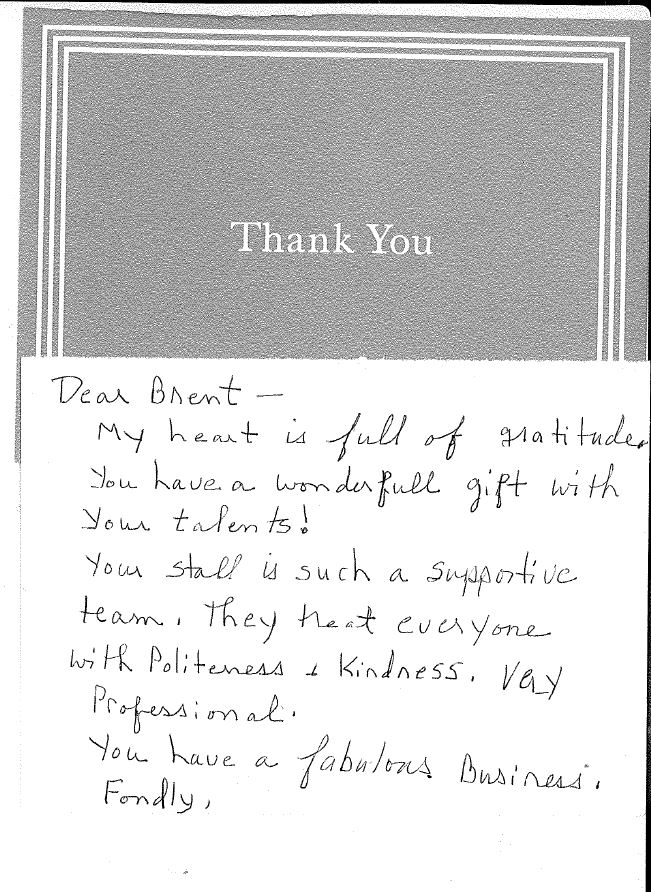 Thank You
Dear Brent —
My heart is full of gratitude.
You have a wonderfull gift with
Your talents!
Your staff is such a supportive
team. They treat everyone
with Politeness & Kindness. Very
Professional.
You have a fabulous Business.
Fondly,